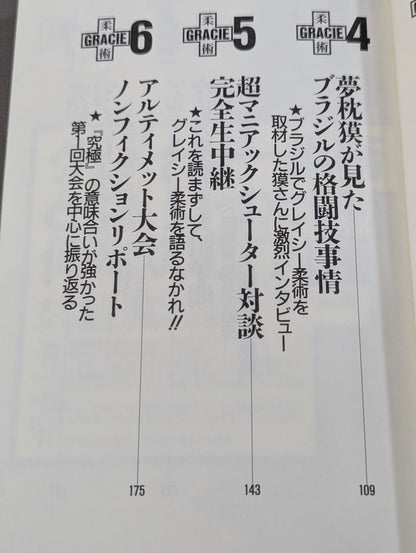 柔
GRACIE 4
術
夢枕獏が見た
ブラジルの格闘技事情
★ブラジルでグレイシー柔術を
取材した獏さんに激烈インタビュー
109
柔
GRACIE 5
術
超マニアックシューター対談
完全生中継
★これを読まずして、
グレイシー柔術を語るなかれ!!
143
柔
GRACIE 6
術
アルティメット大会
ノンフィクションリポート
★『究極』の意味合いが強かった
第1回大会を中心に振り返る
175